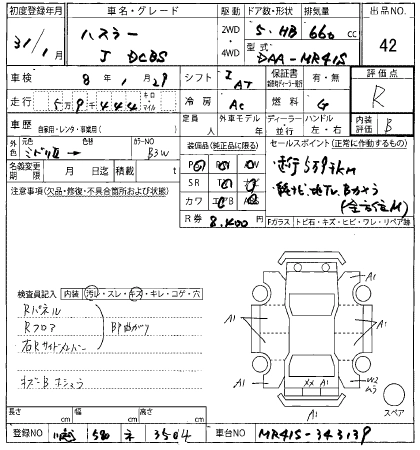 初度登録年月 車名・グレード 駆動 ドア数・形状 排気量 出品NO.
31/1 ハスラー 2WD・4WD 5・HB 660 cc 42
J DCBS 型式 DAA-MR41S
車検 8年1月29 シフト I AT 保証書 有・無 評価点
走行 59444 キロ・マイル 冷房 AC 燃料 G ハンドル 左・右 R
車歴 自家用・レンタ・事業用( ) 定員 人 外車モデル 年 ディーラー・並行 内装評価 B
外色 元色 色替 カラーNO B3W 装備品(純正品に限る) セールスポイント(正常に作動するもの)
名義変更期限 月 日迄 積載 t SR 走行59千km
注意事項(欠品・修復・不具合箇所および状態) カワ エアB
R券 8,400 Fガラス トビ石・キズ・ヒビ・ワレ・リペア跡
検査員記入 内装 汚レ・スレ・キズ・キレ・コゲ・穴
Rパネル
Rフロア BP曲がり
右Rサイドメンバー
A1 A1
A1 A1
A1 W2
XX A1
A1
スペア
長さ cm 幅 cm 高さ cm
登録NO 川越 580 え 3504 車台NO MR41S-343139